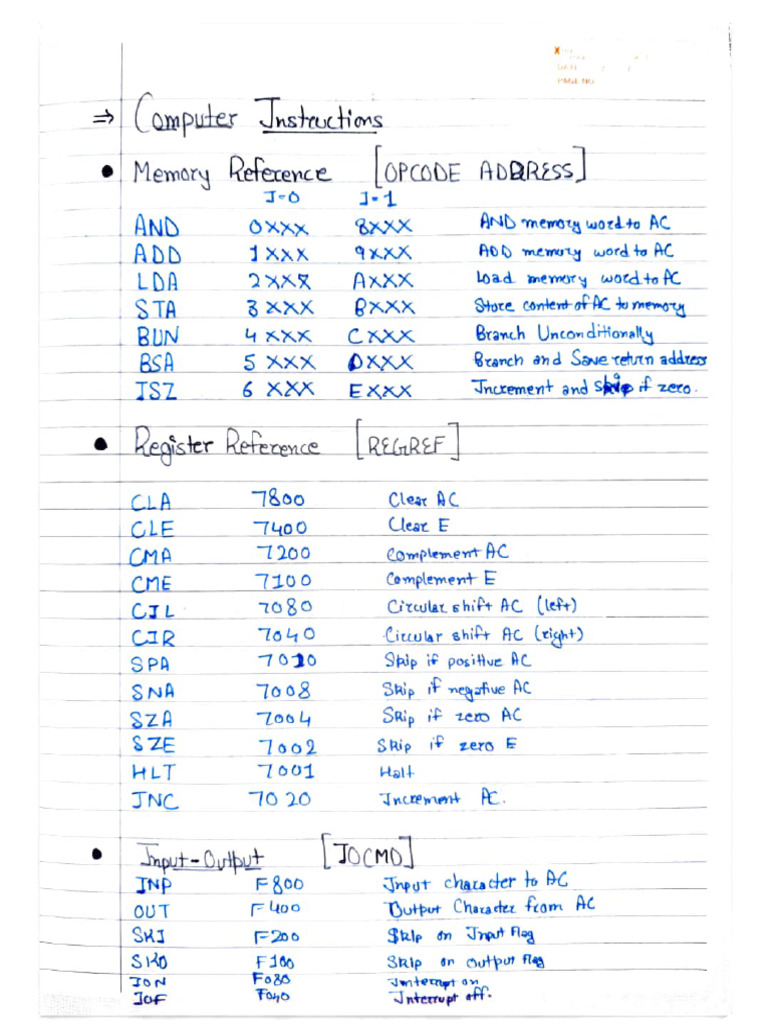 PAGE NO
⇒ Computer Instructions
• Memory Reference [OPCODE ADDRESS]
I=0 I=1
AND 0XXX 8XXX AND memory word to AC
ADD 1XXX 9XXX ADD memory word to AC
LDA 2XXX AXXX Load memory word to AC
STA 3XXX BXXX Store content of AC to memory
BUN 4XXX CXXX Branch Unconditionally
BSA 5XXX DXXX Branch and Save return address
ISZ 6XXX EXXX Increment and skip if zero.
• Register Reference [REGREF]
CLA 7800 Clear AC
CLE 7400 Clear E
CMA 7200 Complement AC
CME 7100 Complement E
CIL 7080 Circular shift AC (left)
CIR 7040 Circular shift AC (right)
SPA 7010 Skip if positive AC
SNA 7008 Skip if negative AC
SZA 7004 Skip if zero AC
SZE 7002 Skip if zero E
HLT 7001 Halt
INC 7020 Increment AC.
• Input-Output [IOCMD]
INP F800 Input character to AC
OUT F400 Output Character from AC
SKI F200 Skip on Input Flag
SKO F100 Skip on output flag
ION F080 Interrupt on
IOF F040 Interrupt off.